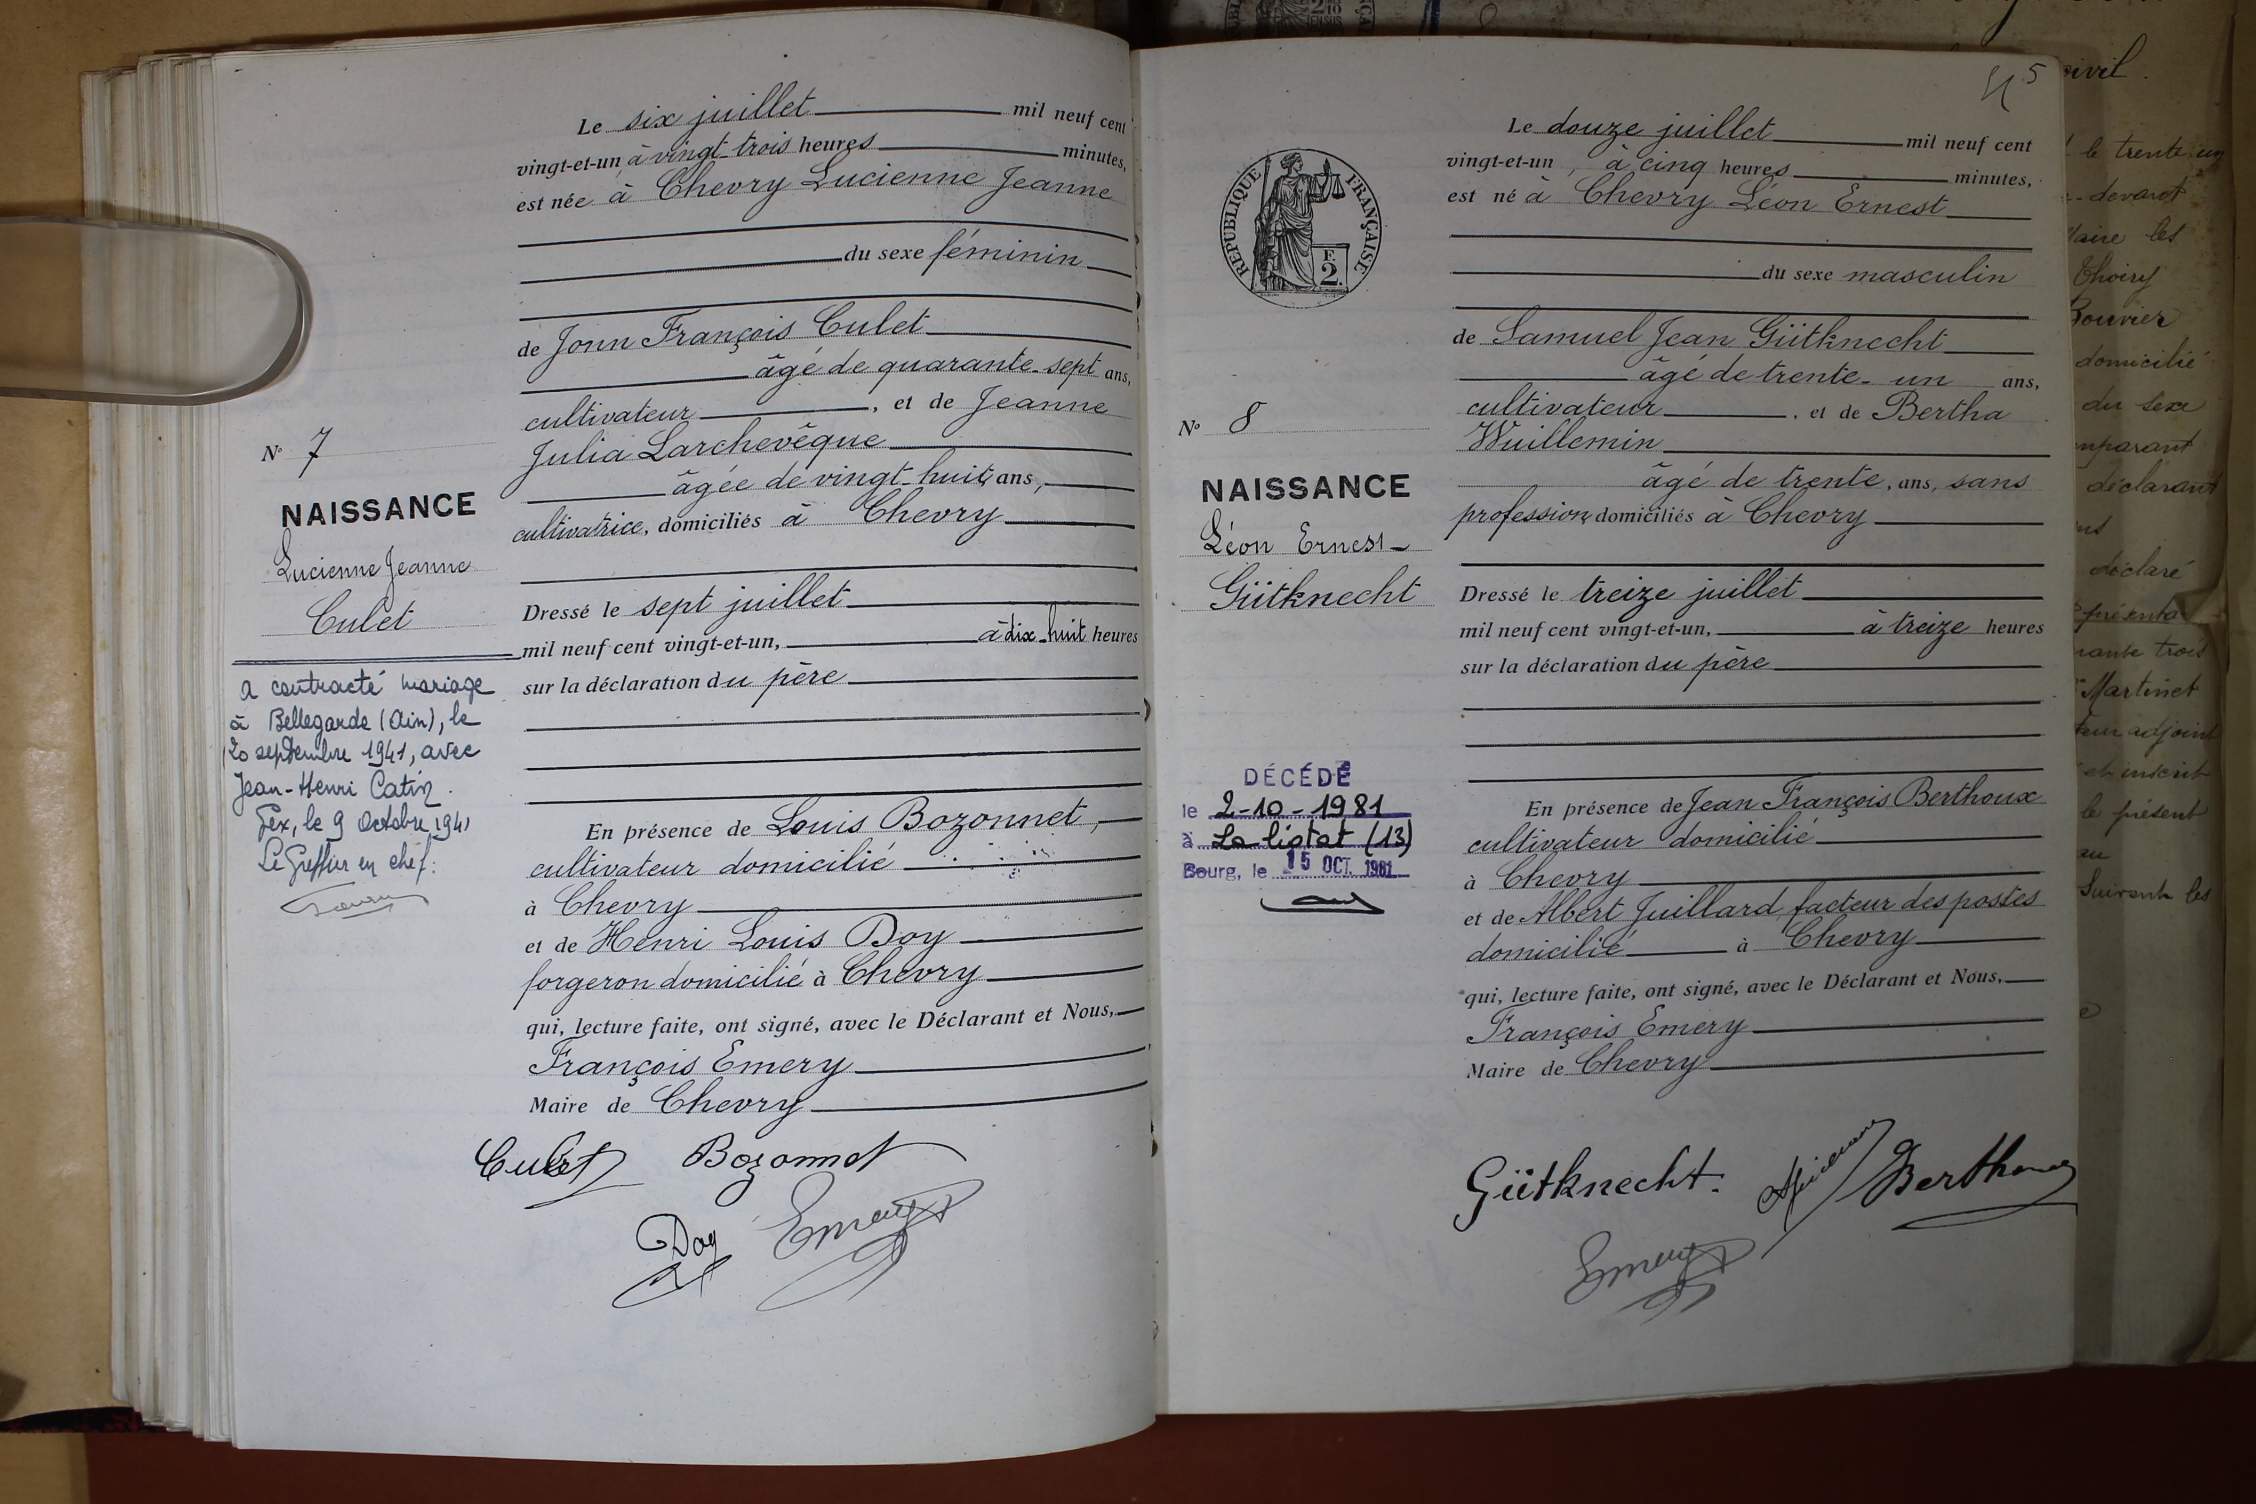 Le six juillet mil neuf cent
vingt-et-un, à vingt-trois heures minutes,
est née à Chevry Lucienne Jeanne
du sexe féminin
de Jonn François Culet
âgé de quarante-sept ans,
cultivateur, et de Jeanne
Julia Larchevêque
âgée de vingt-huit ans,
cultivatrice, domiciliés à Chevry
Dressé le sept juillet
mil neuf cent vingt-et-un, à dix-huit heures
sur la déclaration du père
En présence de Louis Bozonnet,
cultivateur domicilié
à Chevry
et de Henri Louis Doy
forgeron domicilié à Chevry
qui, lecture faite, ont signé, avec le Déclarant et Nous,
François Emery
Maire de Chevry
Culet Bozonnet
Doy Emery
N° 7
NAISSANCE
Lucienne Jeanne
Culet
a contracté mariage
à Bellegarde (Ain), le
20 septembre 1941, avec
Jean-Henri Catin.
Gex, le 9 Octobre 1941
Le Greffier en chef:
5
Le douze juillet mil neuf cent
vingt-et-un, à cinq heures minutes,
est né à Chevry Léon Ernest
du sexe masculin
de Samuel Jean Gütknecht
âgé de trente-un ans,
cultivateur, et de Bertha
Wuillemin
âgé de trente, ans, sans
profession, domiciliés à Chevry
Dressé le treize juillet
mil neuf cent vingt-et-un, à treize heures
sur la déclaration du père
En présence de Jean François Berthoux
cultivateur domicilié
à Chevry
et de Albert Juillard facteur des postes
domicilié à Chevry
qui, lecture faite, ont signé, avec le Déclarant et Nous,
François Emery
Maire de Chevry
Gütknecht. Berthoux
Emery
RÉPUBLIQUE FRANÇAISE
F.
2.
N° 8
NAISSANCE
Léon Ernest
Gütknecht
DÉCÉDÉ
le 2-10-1981
à La Ciotat (13)
Bourg, le 15 OCT. 1981
civil.
le trente un
devant
les
Thoiry
Bouvier
domicilié
du sexe
déclarant
déclaré
trois
Martinet
adjoint
et inscrit
le présent
au
suivant les